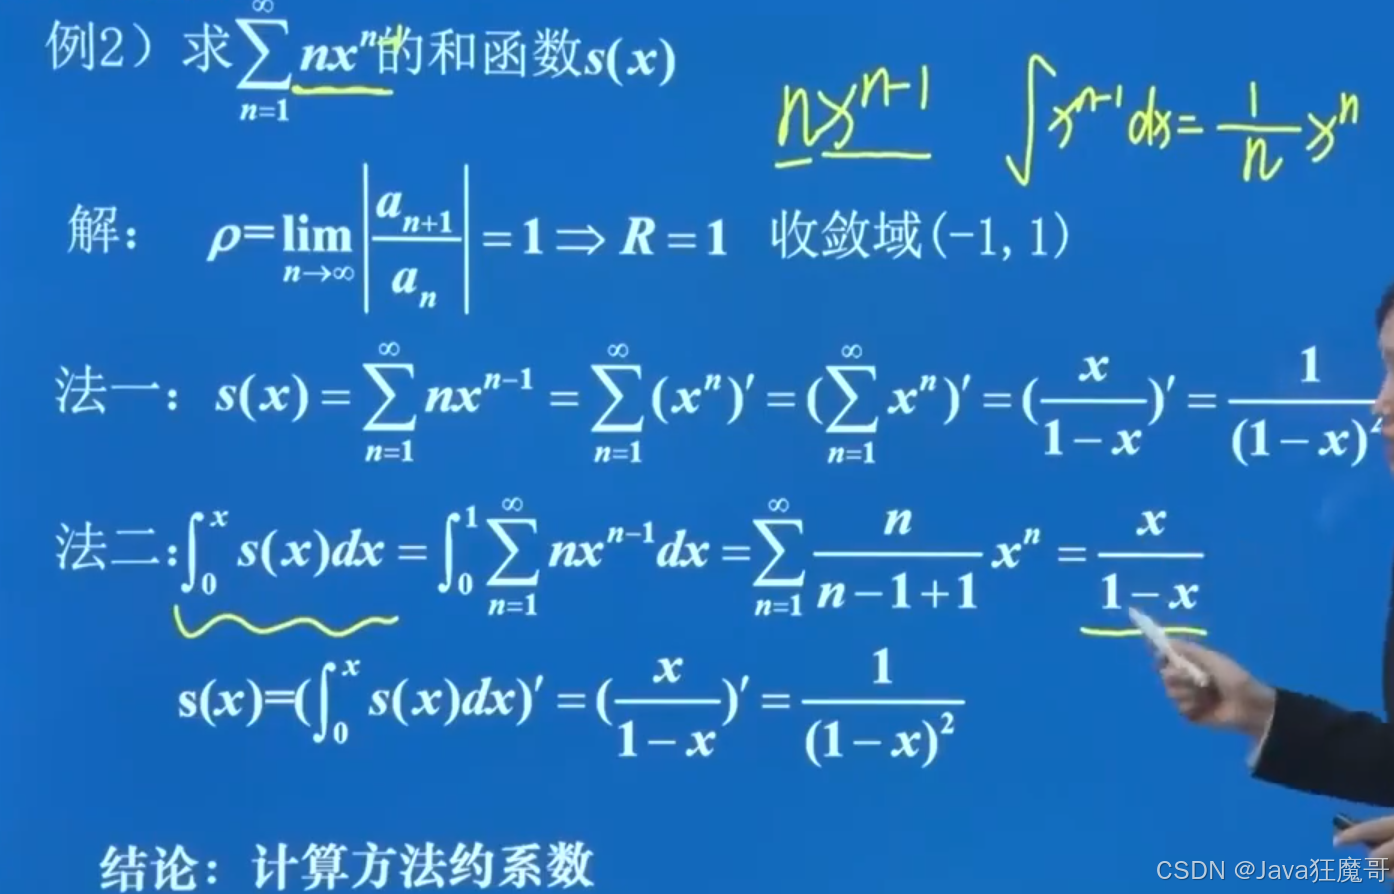 例2）求∑_{n=1}^{∞} nx^n 的和函数s(x)
nx^{n-1} ∫x^{n-1}dx = \frac{1}{n} x^n
解： ρ=lim_{n→∞} |\frac{a_{n+1}}{a_n}| = 1 ⇒ R = 1 收敛域(-1,1)
法一：s(x) = ∑_{n=1}^{∞} nx^{n-1} = ∑_{n=1}^{∞} (x^n)′ = (∑_{n=1}^{∞} x^n)′ = (\frac{x}{1-x})′ = \frac{1}{(1-x)^2}
法二：∫_0^x s(x)dx = ∫_0^1 ∑_{n=1}^{∞} nx^{n-1}dx = ∑_{n=1}^{∞} \frac{n}{n-1+1} x^n = \frac{x}{1-x}
s(x)=(∫_0^x s(x)dx)′ = (\frac{x}{1-x})′ = \frac{1}{(1-x)^2}
结论：计算方法约系数
CSDN @Java狂魔哥